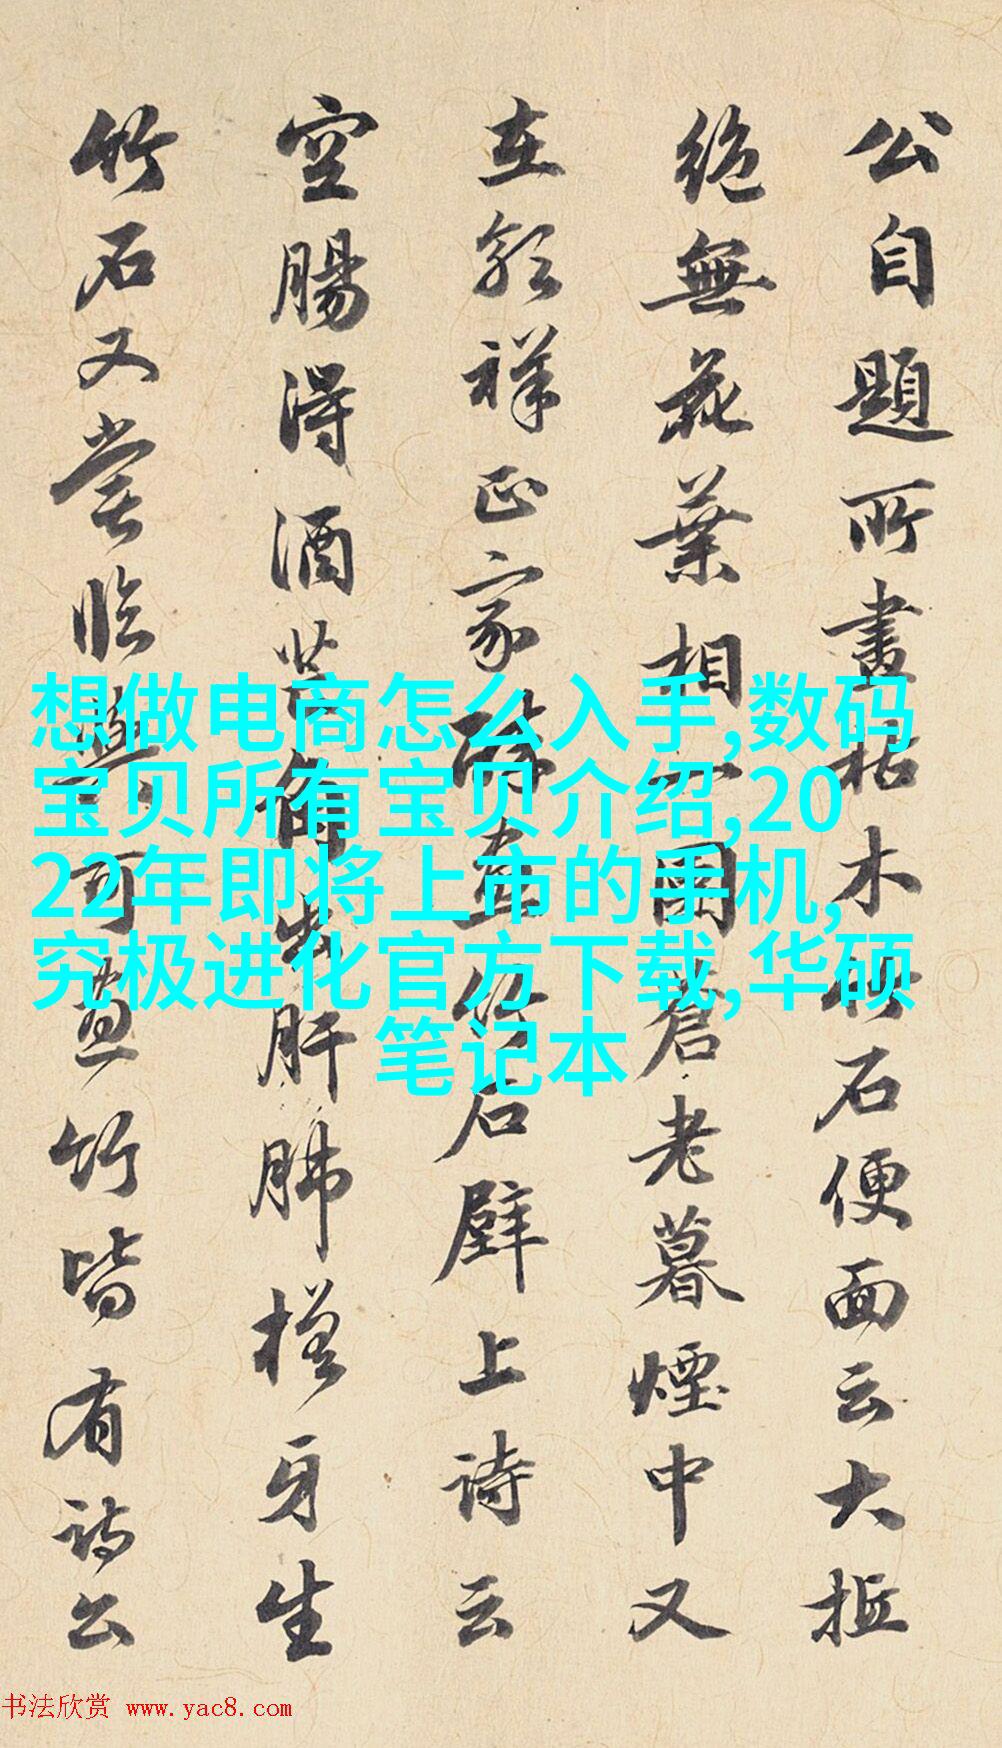 公自題所畫枯木竹石便面云大抵
絶無花葉相團蒼老暮煙中又
在郭祥正家醉畫竹石壁上詩云
空腸得酒芒角出肝肺槎牙生
竹石又嘗臨與可畫竹皆有詩公
想做电商怎么入手,数码
宝贝所有宝贝介绍,20
22年即将上市的手机,
究极进化官方下载,华硕
笔记本
书法欣赏 www.yac8.com